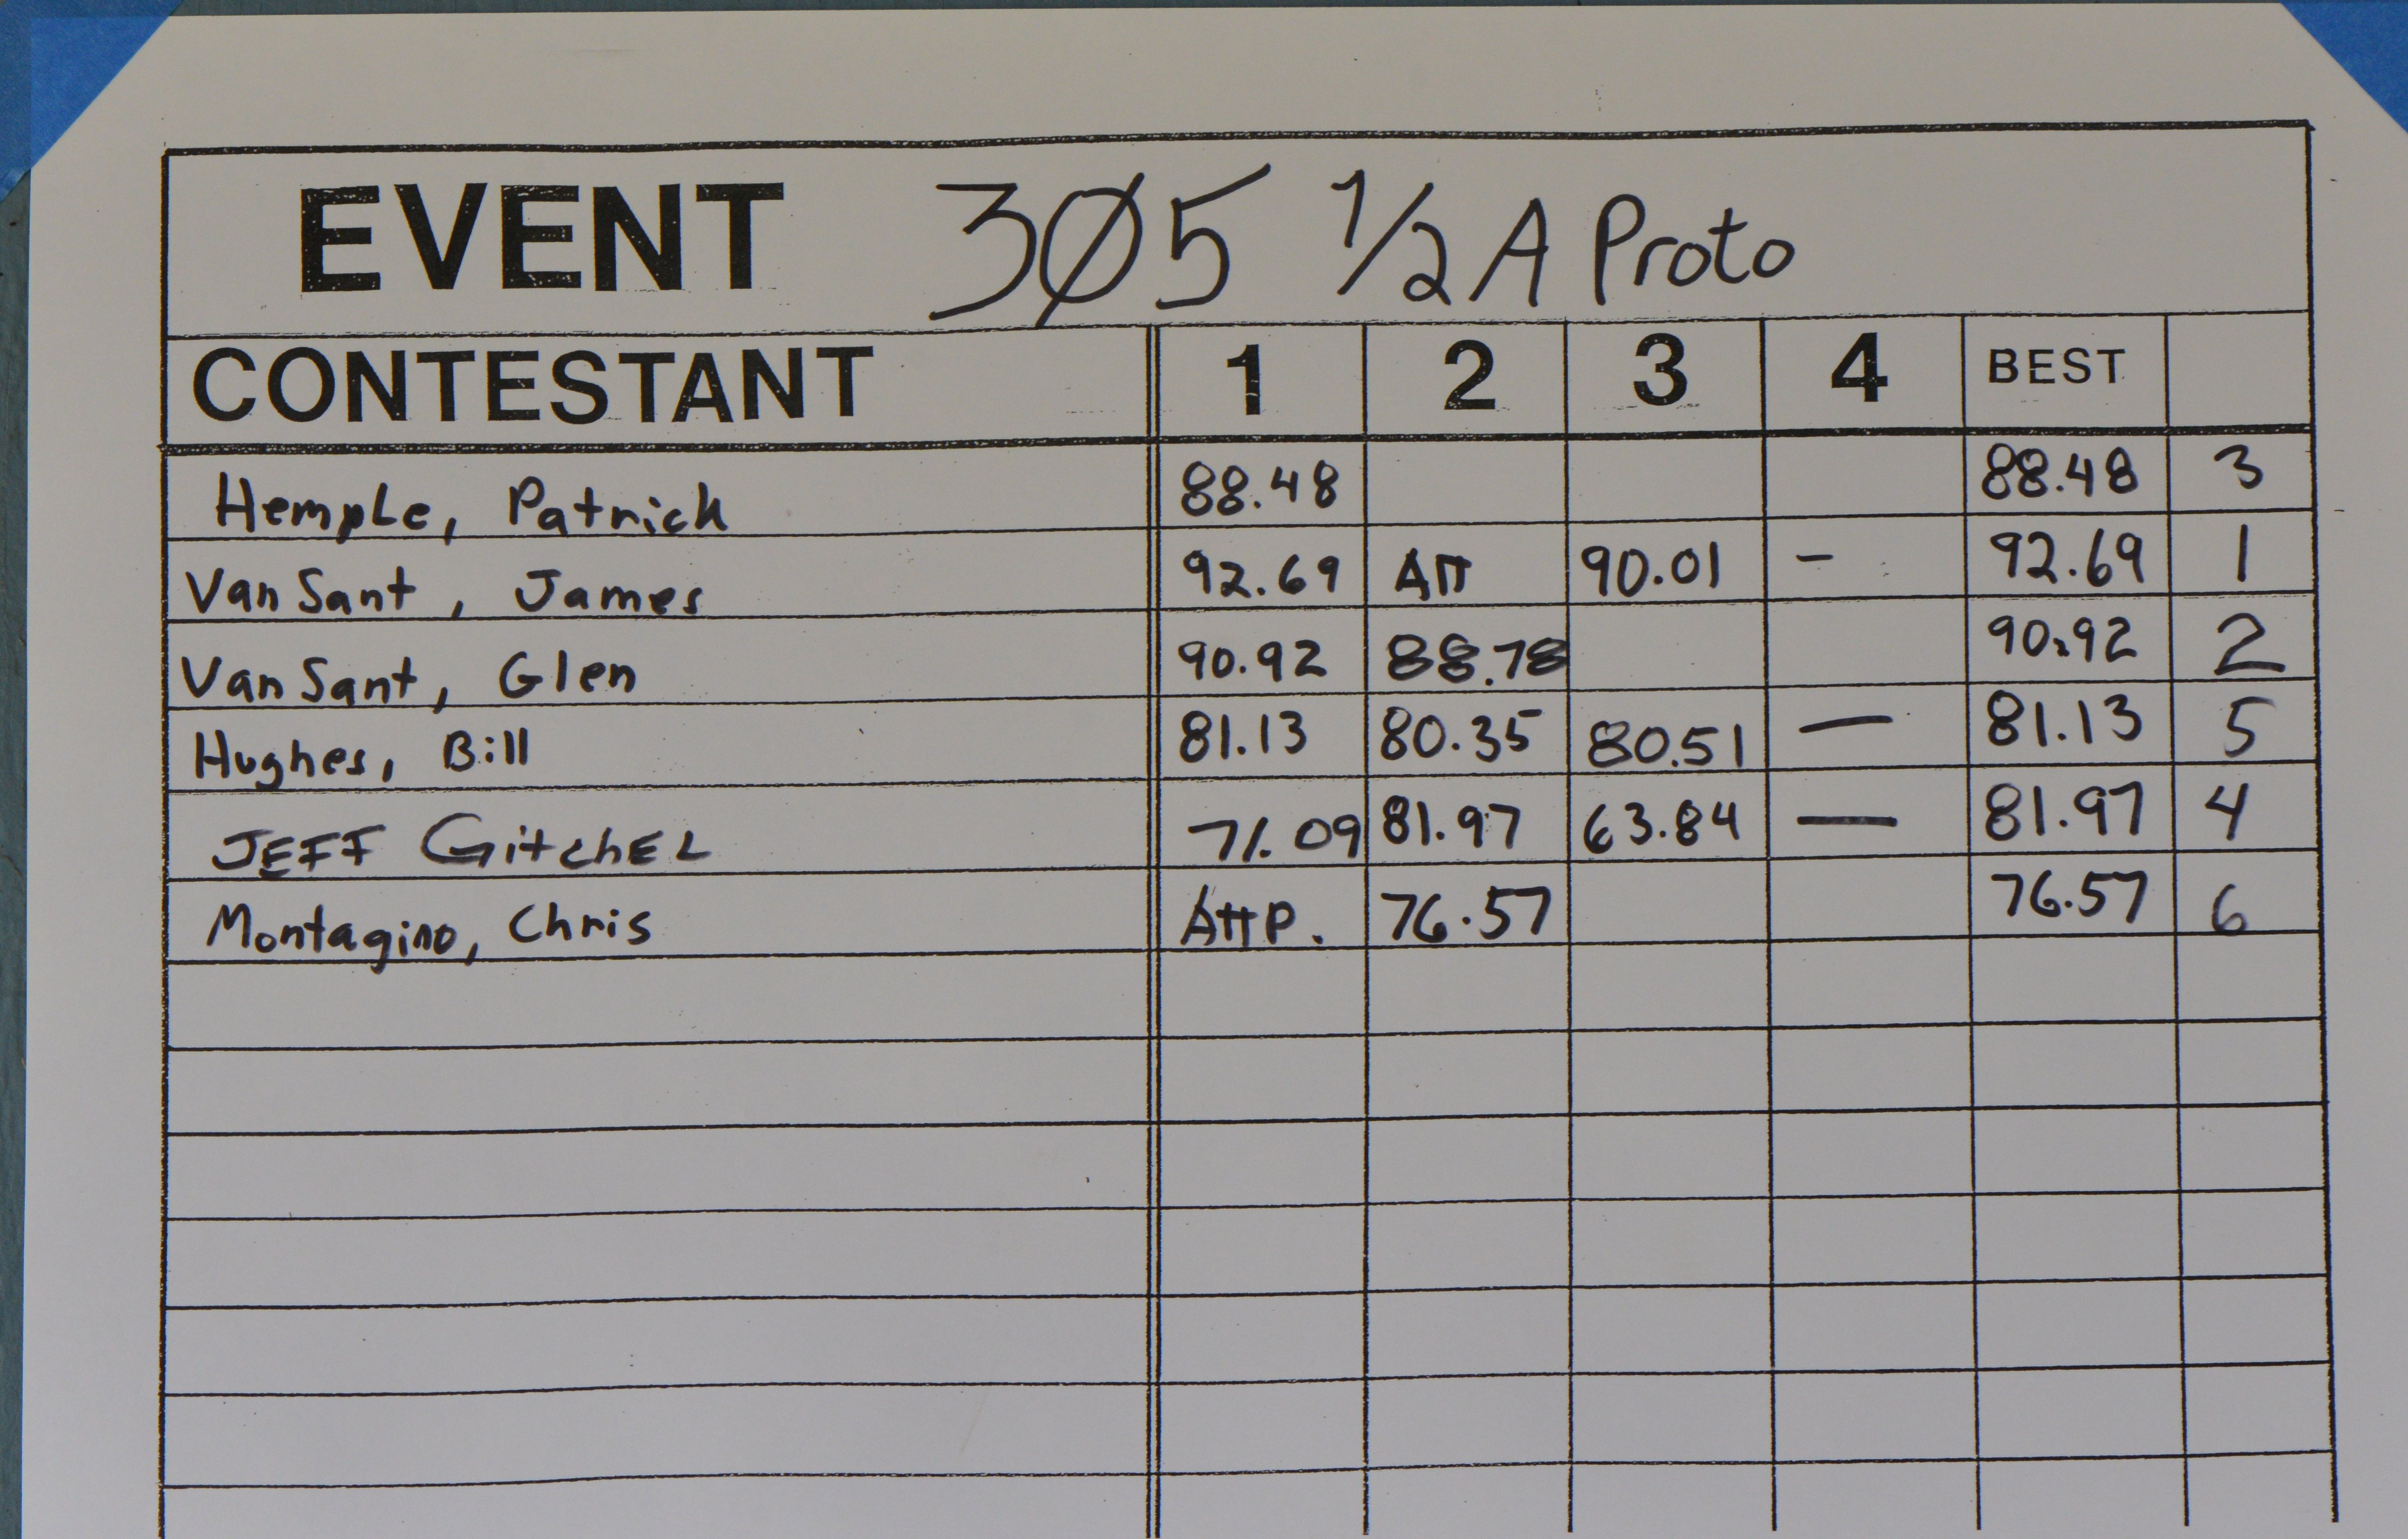 EVENT 3Ø5 1/2 A Proto
CONTESTANT 1 2 3 4 BEST
Hemple, Patrick 88.48 88.48 3
Van Sant, James 92.69 Att 90.01 - 92.69 1
Van Sant, Glen 90.92 88.78 90.92 2
Hughes, Bill 81.13 80.35 80.51 — 81.13 5
JEFF GitchEL 71.09 81.97 63.84 — 81.97 4
Montagino, Chris AttP. 76.57 76.57 6